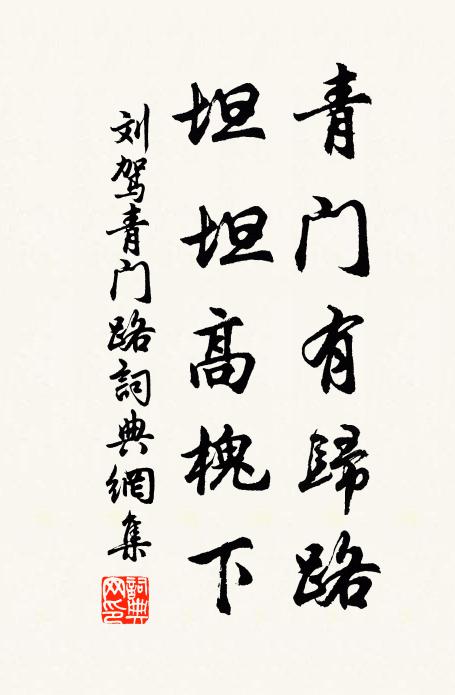 青门有歸路
坦坦高槐下
刘驾青门路詞典網集
詞典网印